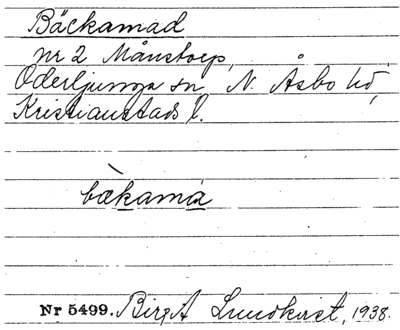 Bäckamad
nr 2 Månstorp,
Oderljunga sn, N. Åsbo hd,
Kristianstads l.
bækama
Nr 5499. Birgit Lundkvist, 1938.